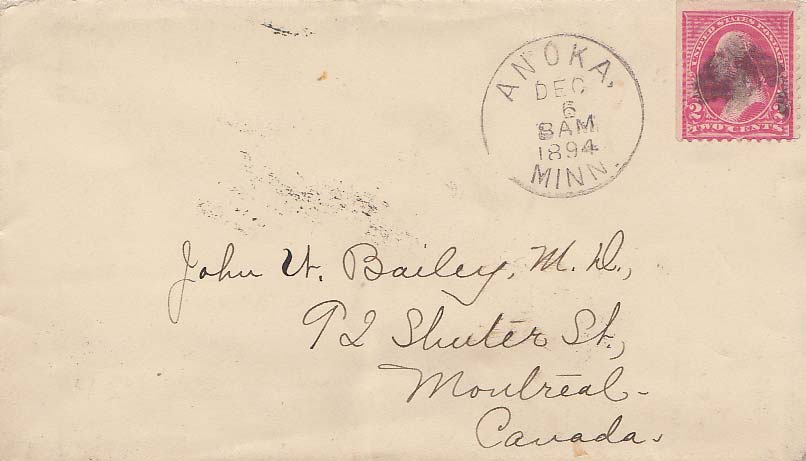 UNITED STATES POSTAGE
2 2
TWO CENTS
ANOKA,
DEC
6
8AM
1894
MINN.
John W. Bailey, M.D.,
92 Shuter St.,
Montreal-
Canada.